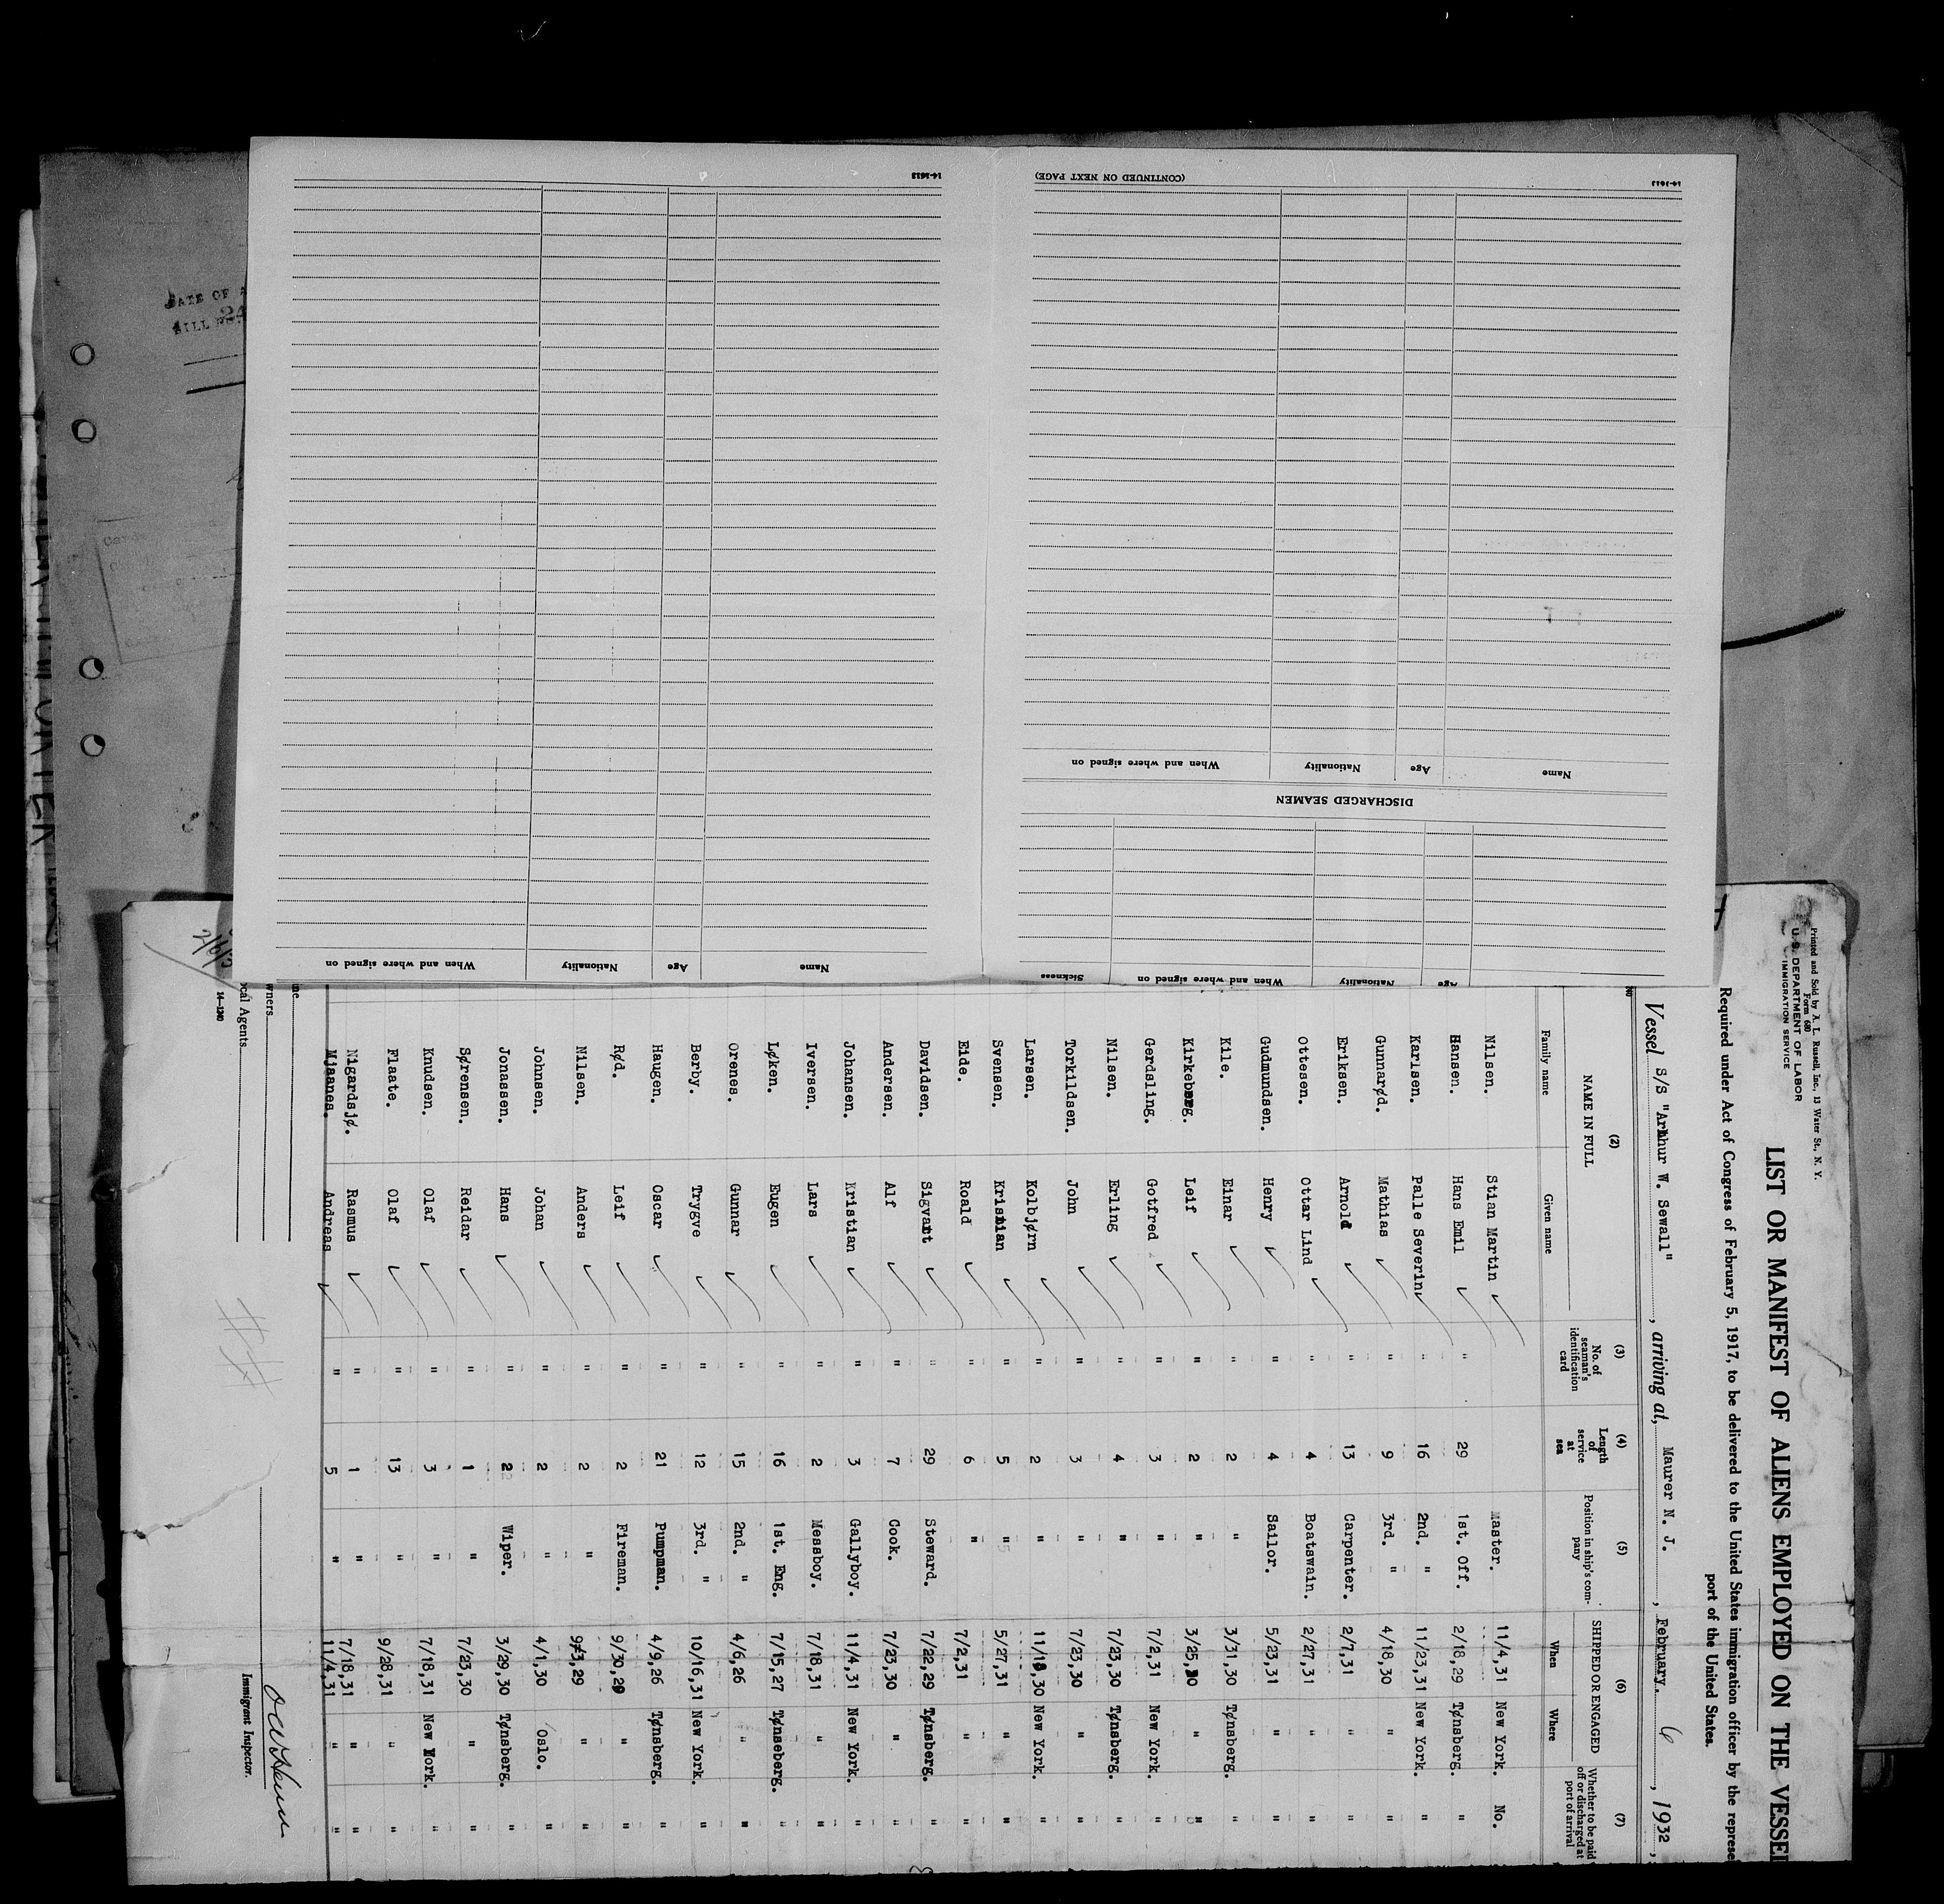 14-1613
(CONTINUED ON NEXT PAGE)
14-1613
When and where signed on
Nationality
Age
Name
DISCHARGED SEAMEN
Name
Age
Nationality
When and where signed on
Age
Nationality
When and where signed on
Sickness
Printed and Sold by A. L. Russell, Inc., 13 Water St., N. Y.
Form 680
U. S. DEPARTMENT OF LABOR
IMMIGRATION SERVICE
LIST OR MANIFEST OF ALIENS EMPLOYED ON THE VESSEL
Required under Act of Congress of February 5, 1917, to be delivered to the United States immigration officer by the represe
port of the United States.
Vessel S/S "Arthur W. Sewall", arriving at, Maurer N. J., February. 6, 1932,
(2) (3) (4) (5) (6) (7)
NAME IN FULL
Family name Given name
No. of seaman's identification card
Length of service at sea
Position in ship's company
SHIPPED OR ENGAGED
When Where
Whether to be paid off or discharged at port of arrival
Nilsen. Stian Martin Master. 11/4,31 New York. No.
Hansen. Hans Emil " 29 1st. Off. 2/18,29 Tønsberg. "
Karlsen. Palle Severin " 16 2nd. " 11/23,31 New York. "
Gunnarød. Mathias " 9 3rd. " 4/18,30 " "
Eriksen. Arnold " 13 Carpenter. 2/7,31 " "
Ottesen. Ottar Lind " 4 Boatswain. 2/27,31 " "
Gudmundsen. Henry " 4 Sailor. 5/23,31 " "
Kile. Einar " 2 " 3/31,30 Tønsberg. "
Kirkeberg. Leif " 2 " 3/25,30 " "
Gerdsling. Gotfred " 3 " 7/2,31 New York. "
Nilsen. Erling " 4 " 7/23,30 Tønsberg. "
Torkildsen. John " 3 " 7/23,30 " "
Larsen. Kolbjørn " 2 " 11/18,30 New York. "
Svensen. Kristian " 5 " 5/27,31 " "
Eide. Roald " 6 " 7/2,31 " "
Davidsen. Sigvart " 29 Steward. 7/22,29 Tønsberg. "
Andersen. Alf " 7 Cook. 7/23,30 " "
Johansen. Kristian " 3 Gallyboy. 11/4,31 New York. "
Iversen. Lars " 2 Messboy. 7/18,31 " "
Løken. Eugen " 16 1st. Eng. 7/15,27 Tønseberg. "
Orenes. Gunnar " 15 2nd. " 4/6,26 " "
Berby. Trygve " 12 3rd. " 10/16,31 New York. "
Haugen. Oscar " 21 Pumpman. 4/9,26 Tønsberg. "
Rød. Leif " 2 Fireman. 9/30,29 " "
Nilsen. Anders " 2 " 9/3,29 " "
Johnsen. Johan " 2 " 4/1,30 Oslo. "
Jonassen. Hans " 2 Wiper. 3/29,30 Tønsberg. "
Sørensen. Reidar " 1 " 7/23,30 " "
Knudsen. Olaf " 3 " 7/18,31 New York. "
Flaate. Olaf " 13 " 9/28,31 " "
Nigardsjø. Rasmus " 1 " 7/18,31 " "
Mjaanes. Andreas " 5 " 11/4,31 " "
wners
cal Agents
14-1240
Immigrant Inspector.
DATE OF